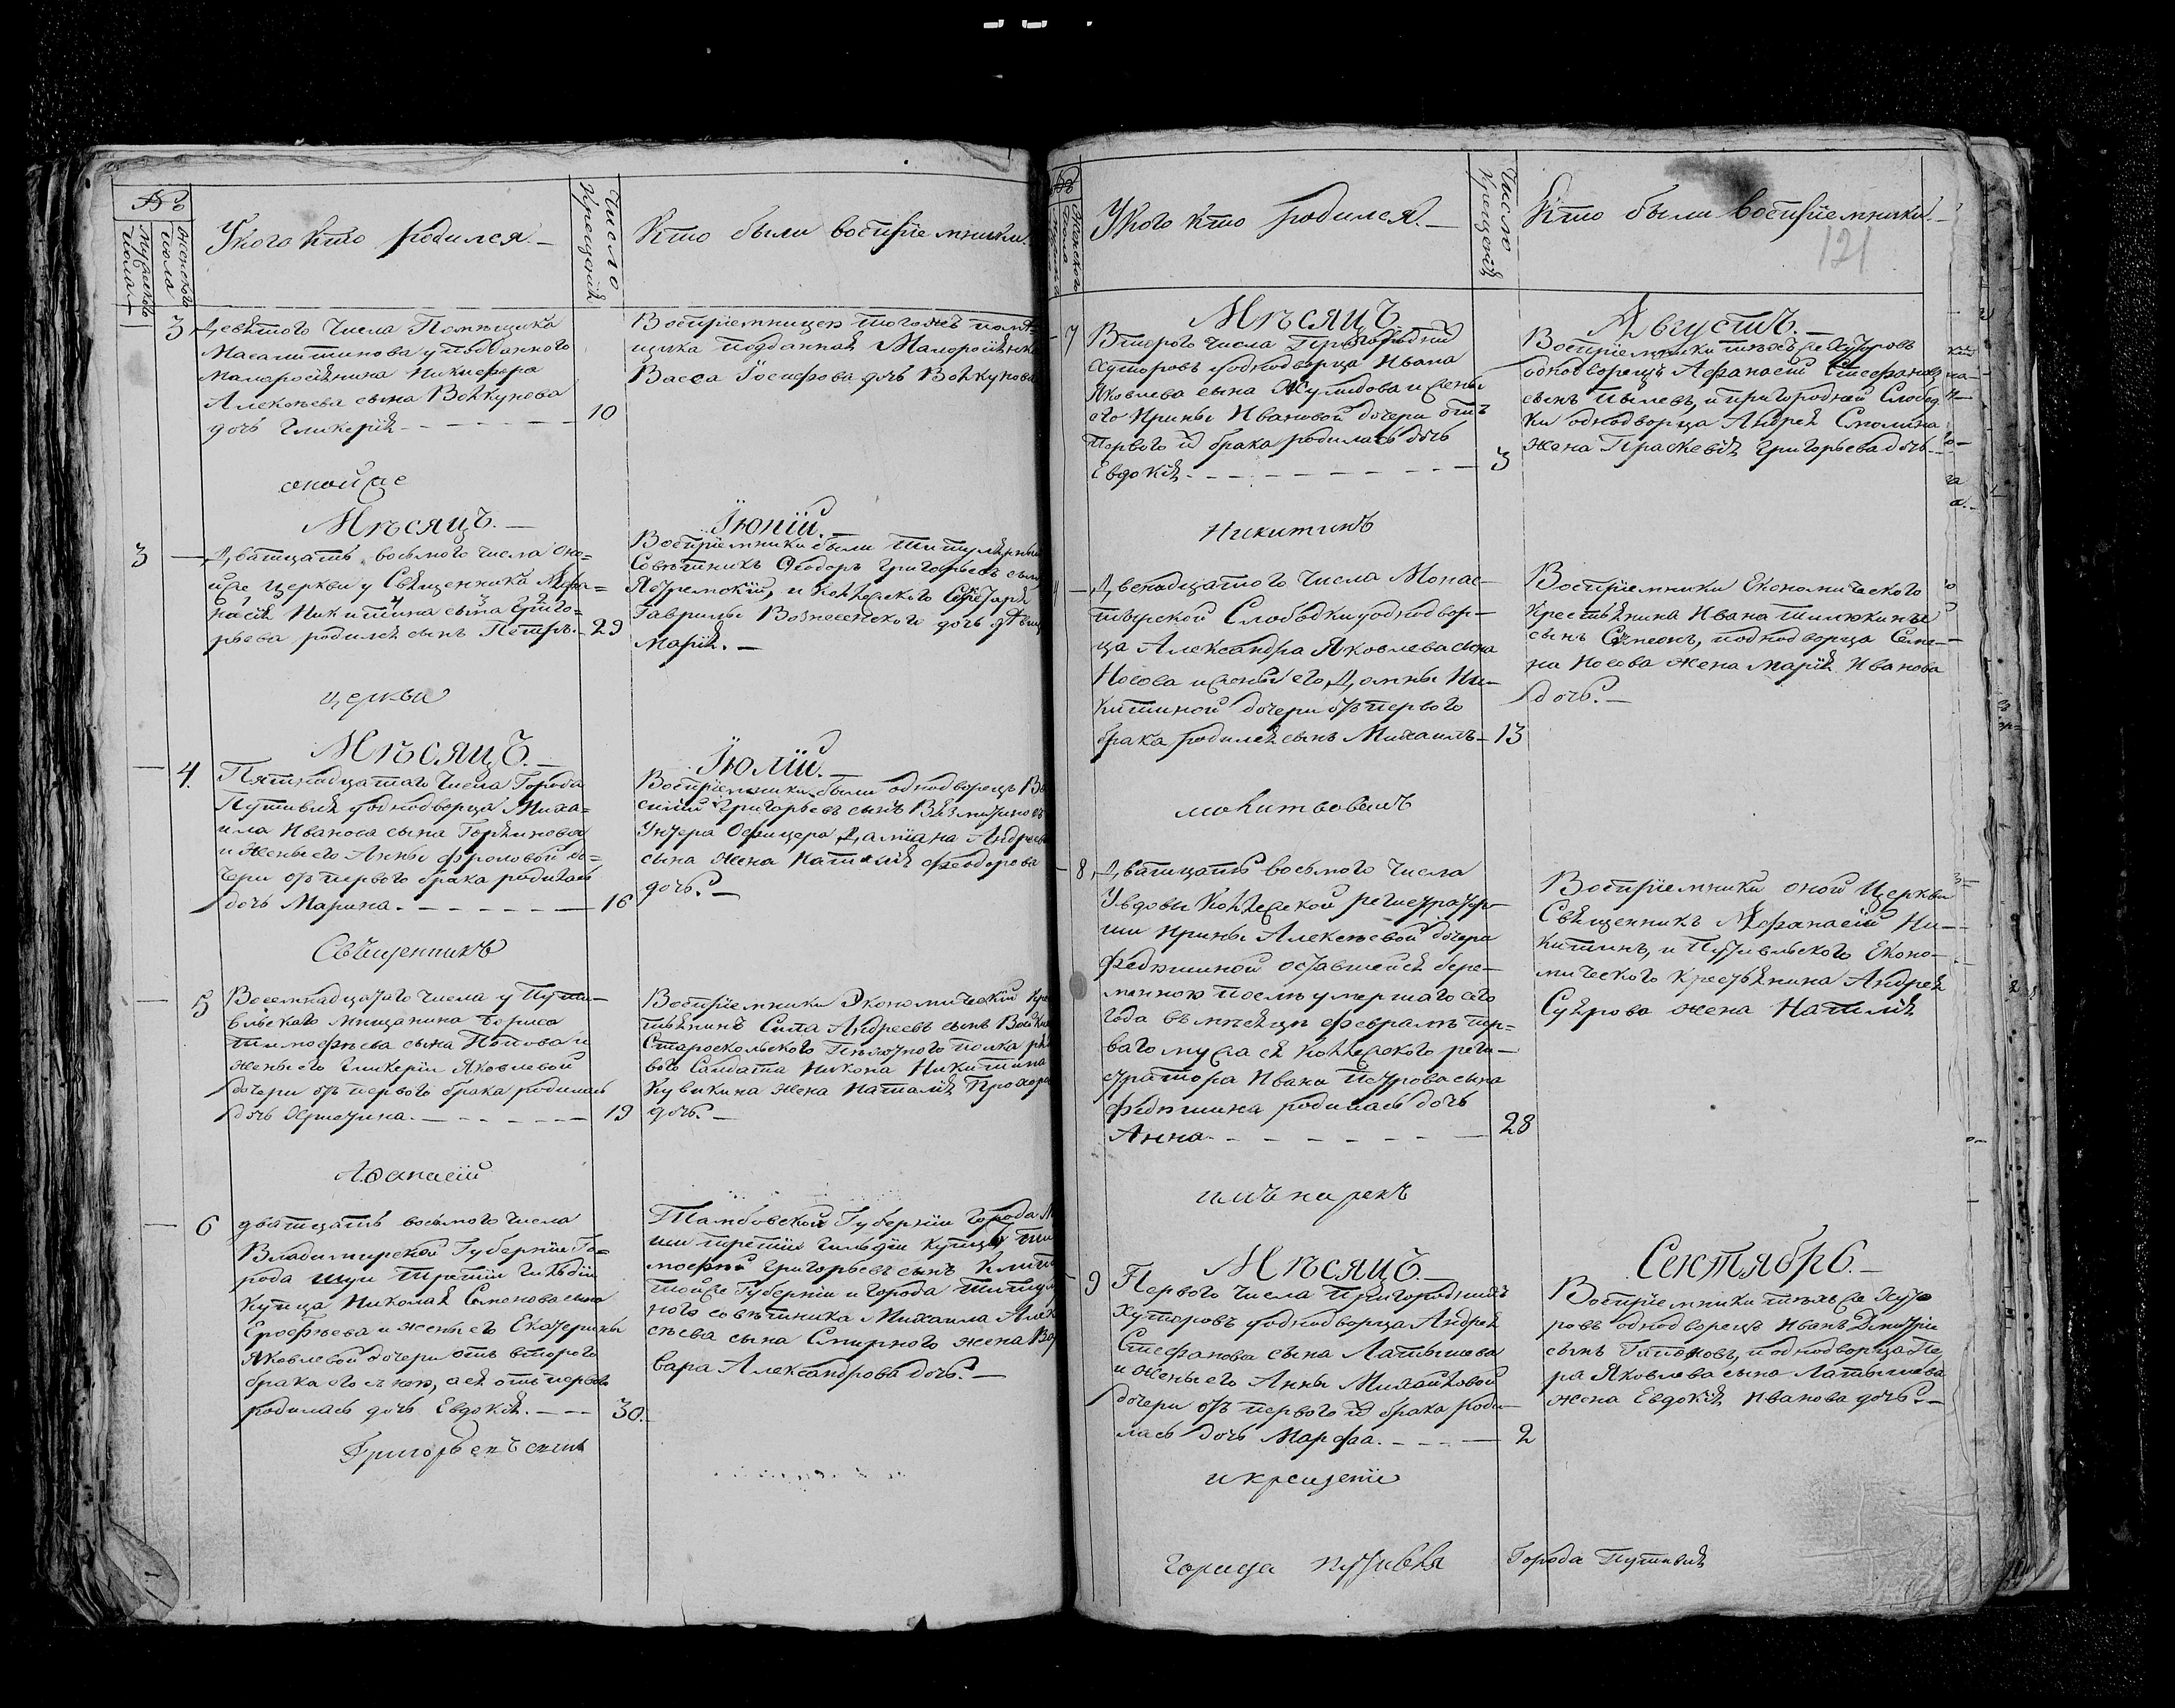 №
мужеска пола
женскаго пола
У кого кто родился. —
Число крещенія
Кто были воспріемники.
3 Девятого числа Помѣщика
Масалитинова у подданного
малоросіянина Никифора
Алексѣева сына Войкунова
дочь Гликерія 10
Воспріемницею того жъ помѣ=
щика подданная Малоросіянка
Васса Іосифова дочь Войкунова
оной же
Мѣсяцъ. — Іюній. —
3 — Дватцать восьмого числа оно=
й же церкви у Священника Афа=
насія Никитина сына Григо=
рьева родился сынъ Петръ. — 29
Воспріемники были титулярный
Совѣтникъ Ѳеодоръ Григорьевъ сынъ
и Коллежского Секретаря
Гаврилы Вознесенского дочь дѣвица
Марія. —
церкви
Мѣсяцъ. — Іюлій. —
4. Пятнадцатаго числа Города
Путивля у однодворца Миха=
ила Иванова сына Горяинова
и жены его Анны Фроловой до=
чери отъ первого брака родилась
дочь Марина. — 16
Воспріемники были однодворецъ Ва
силій Григорьевъ сынъ
Унтера Офицера Даміана Андреева
сына жена Наталія Феодорова
дочь. —
Священникъ
5 Восемнадцатаго числа у Пути—
вльскаго мещанина Бориса
Тимофѣева сына Попова и
жены его Гликеріи Яковлевой
дочери отъ первого брака родилась
дочь Христина. — 19
Воспріемники Экономическій кре
стьянинъ Сила Андреевъ сынъ
Староскольского Пѣхотного полка рядо
вого Салдата Никона Никитина
Кувикина жена Наталія Прохорова
дочь. —
Афанасій
6 дватцать восьмого числа
Владимирской Губерніи Го=
рода Шуи третій Гильдіи
Купца Николая Семенова сына
Ерофѣева и жены его Екатерины
Яковлевой дочери отъ второго
брака его с нею, а ея отъ первого
родилась дочь Евдокія. — 30.
Тамбовской Губерніи города
третій Гильдіи купецъ Ти
мофей Григорьевъ сынъ
той же Губерніи и города Титуляр
ного совѣтника Михаила Алек
сѣева сына Смирного жена Вар
вара Александрова дочь. —
Григорьевъ сынъ
№
женского пола
У кого кто родился. —
Число крещенія
Кто были воспріемники. —
121
Мѣсяцъ Августъ. —
7 Второго числа Пригородних
хуторовъ у однодворца Ивана
Яковлева сына и жены
его Ирины Ивановой дочери отъ
Первого их брака родилась дочь
Евдокія. 3
Воспріемники тѣхъ же хуторовъ
однодворецъ Афанасій Стефановъ
сынъ Пылевъ, и пригородней Слобод
ки однодворца Андрея Смолина
жена Праскевія Григорьева дочь
Никитинъ
— Двенадцатого числа Монас—
тырской Слободки у однодвор—
ца Александра Яковлева сына
Носова и жены его Домны Ни—
китиной дочери отъ первого
брака родился сынъ Михаилъ — 13
Воспріемники Економического
крестьянина Ивана
сынъ Симеонъ, и однодворца Семе—
на Носова жена Марія Иванова
дочь. —
молитвовалъ
8 Дватцать восьмого числа
У вдовы Коллежской регистратор—
ши Ирины Алексѣевой дочери
Федюшиной оставшейся бере—
менною послѣ умершаго сего
года въ мѣсяцѣ Февралѣ пер=
ваго мужа ея Коллежского реги—
стратора Ивана Петрова сына
Федюшина родилась дочь
Анна. 28
Воспріемники оной Церкви
Священникъ Афанасій Ни—
китинъ, и Путивльского Еконо—
мического крестьянина Андрея
жена Наталія
имъ нарекъ
Мѣсяцъ. — Сентябрь. —
9 Первого числа Пригороднихъ
хуторовъ у однодворца Андрея
Стефанова сына Латышева
и жены его Анны Михайловой
дочери отъ первого их брака роди—
лась дочь Марфа. 2
Воспріемники тѣхъ же Хуто
ровъ однодворецъ Иванъ Дмитріе
сынъ Гапоновъ, и однодворца Пе
ра Яковлева сына Латышева
жена Евдокія Иванова дочь. —
и крещеніи
города Путивля Города Путивля